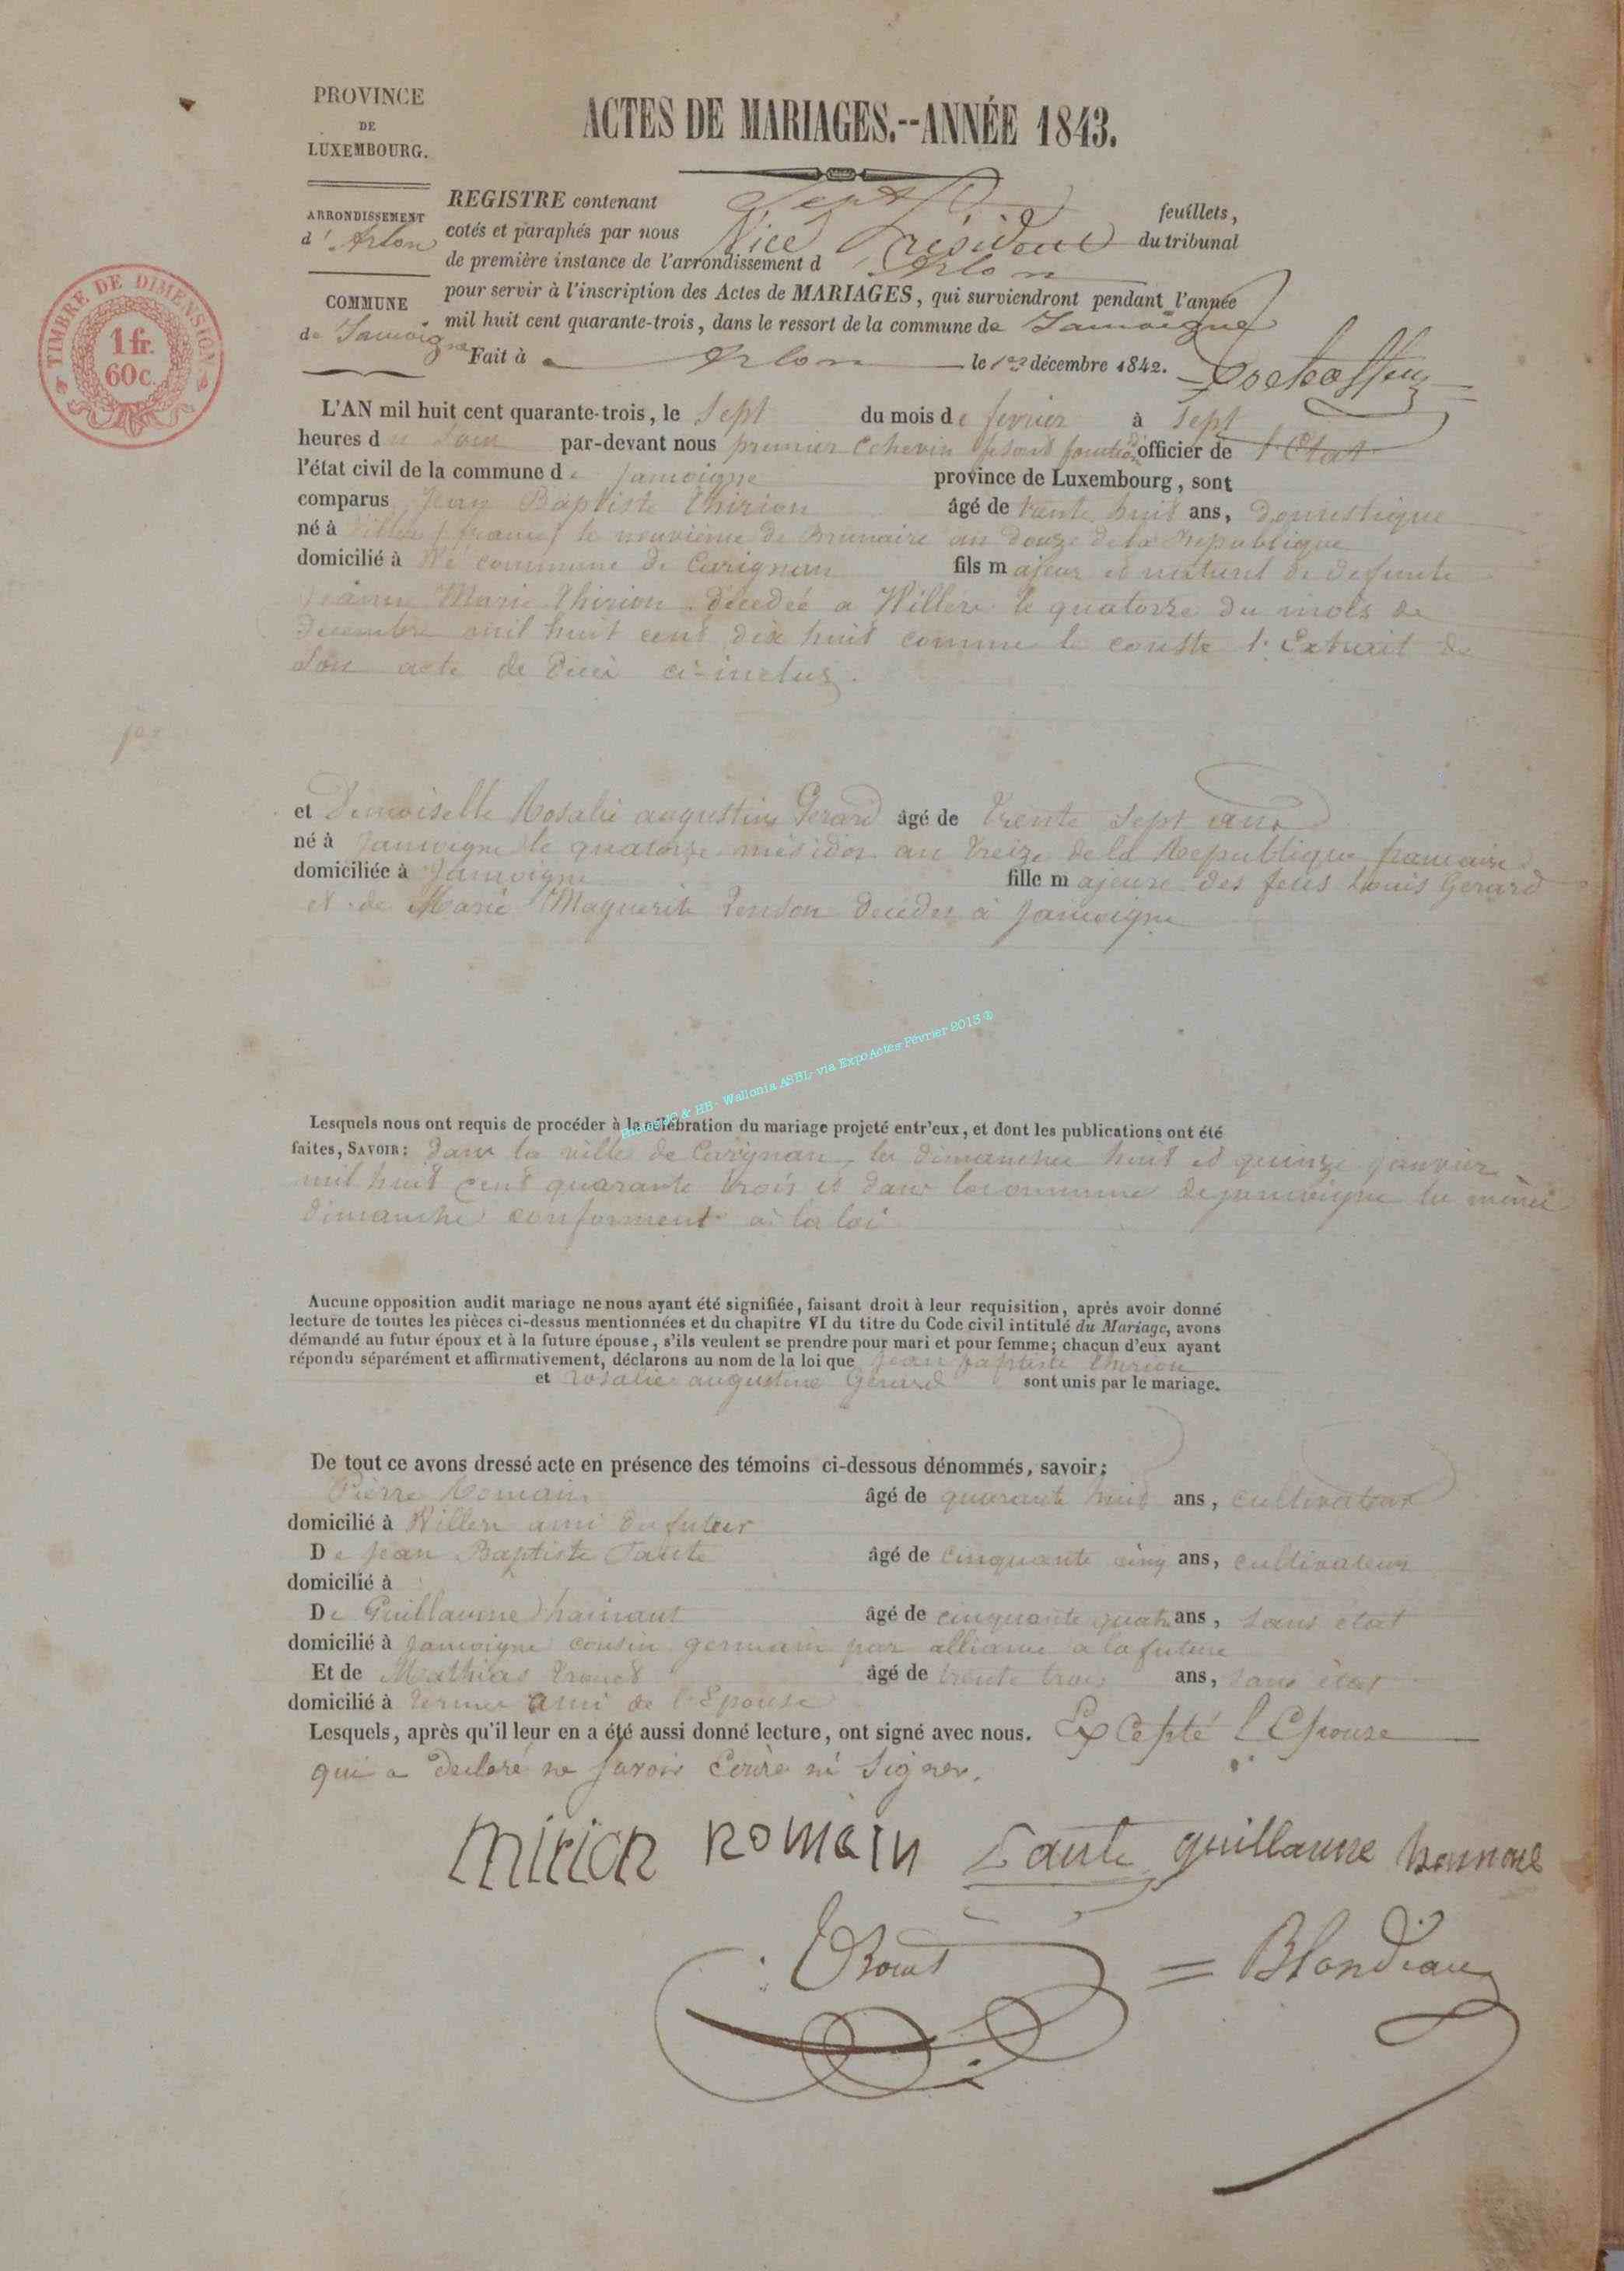 PROVINCE
DE
LUXEMBOURG.
ACTES DE MARIAGES.--ANNÉE 1843.
ARRONDISSEMENT
d' Arlon
COMMUNE
de Jamoigne
TIMBRE DE DIMENSION
1 fr.
60 c.
REGISTRE contenant Sept feuillets,
cotés et paraphés par nous Vice Président du tribunal
de première instance de l'arrondissement d Arlon
pour servir à l'inscription des Actes de MARIAGES, qui surviendront pendant l'année
mil huit cent quarante-trois, dans le ressort de la commune de Jamoigne
Fait à Arlon le 1er décembre 1842.
L'AN mil huit cent quarante-trois, le Sept du mois de fevrier à Sept
heures du Soir par-devant nous premier Echevin fesant officier de l'Etat
l'état civil de la commune de Jamoigne province de Luxembourg, sont
comparus Jean Baptiste Thirion âgé de trente huit ans, Domestique
né à Villers (france) le neuvième de Brumaire an Douze de la Republique
domicilié à Wé commune de Carignan fils majeur et naturel de defunte
Jeanne Marie Thirion decedée a Willers le quatorze du mois de
Decembre mil huit cent dix huit comme le conste l'Extrait de
Son acte de Décè ci-inclus.
et Demoiselle Rosalie augustine Gerard âgé de trente Sept ans
né à Jamoigne le quatorze messidor an treize de la Republique francaise
domiciliée à Jamoigne fille majeure des feus Louis Gerard
et de Marie Maguerite decedes à Jamoigne
Photos JC & HB - Wallonia ASBL- via ExpoActes Février 2013 ®
Lesquels nous ont requis de procéder à la célébration du mariage projeté entr'eux, et dont les publications ont été
faites, SAVOIR: Dans la ville de Carignan les dimanches huit et quinze janvier
mil huit cent quarante trois et dans la commune de jamoigne les mêmes
dimanche conforment à la loi
Aucune opposition audit mariage ne nous ayant été signifiée, faisant droit à leur requisition, après avoir donné
lecture de toutes les pièces ci-dessus mentionnées et du chapitre VI du titre du Code civil intitulé du Mariage, avons
démandé au futur époux et à la future épouse, s'ils veulent se prendre pour mari et pour femme; chacun d'eux ayant
répondu séparément et affirmativement, déclarons au nom de la loi que jean baptiste thirion
et rosalie augustine Gerard sont unis par le mariage.
De tout ce avons dressé acte en présence des témoins ci-dessous dénommés, savoir;
Pierre Romain âgé de quarante huit ans, cultivateur
domicilié à Willers ami du futur
De Jean Baptiste Tante âgé de cinquante cinq ans, cultivateur
domicilié à
De Guillaume âgé de cinquante quatre ans, sans etat
domicilié à Jamoigne cousin germain par alliance a la future
Et de Mathias âgé de trente trois ans, sans état
domicilié à ami de l'Epouse
Lesquels, après qu'il leur en a été aussi donné lecture, ont signé avec nous. Excepté l'Epouse
qui a declaré ne Savoir Ecrire ni Signer.
Romain guillaume
Blondiau